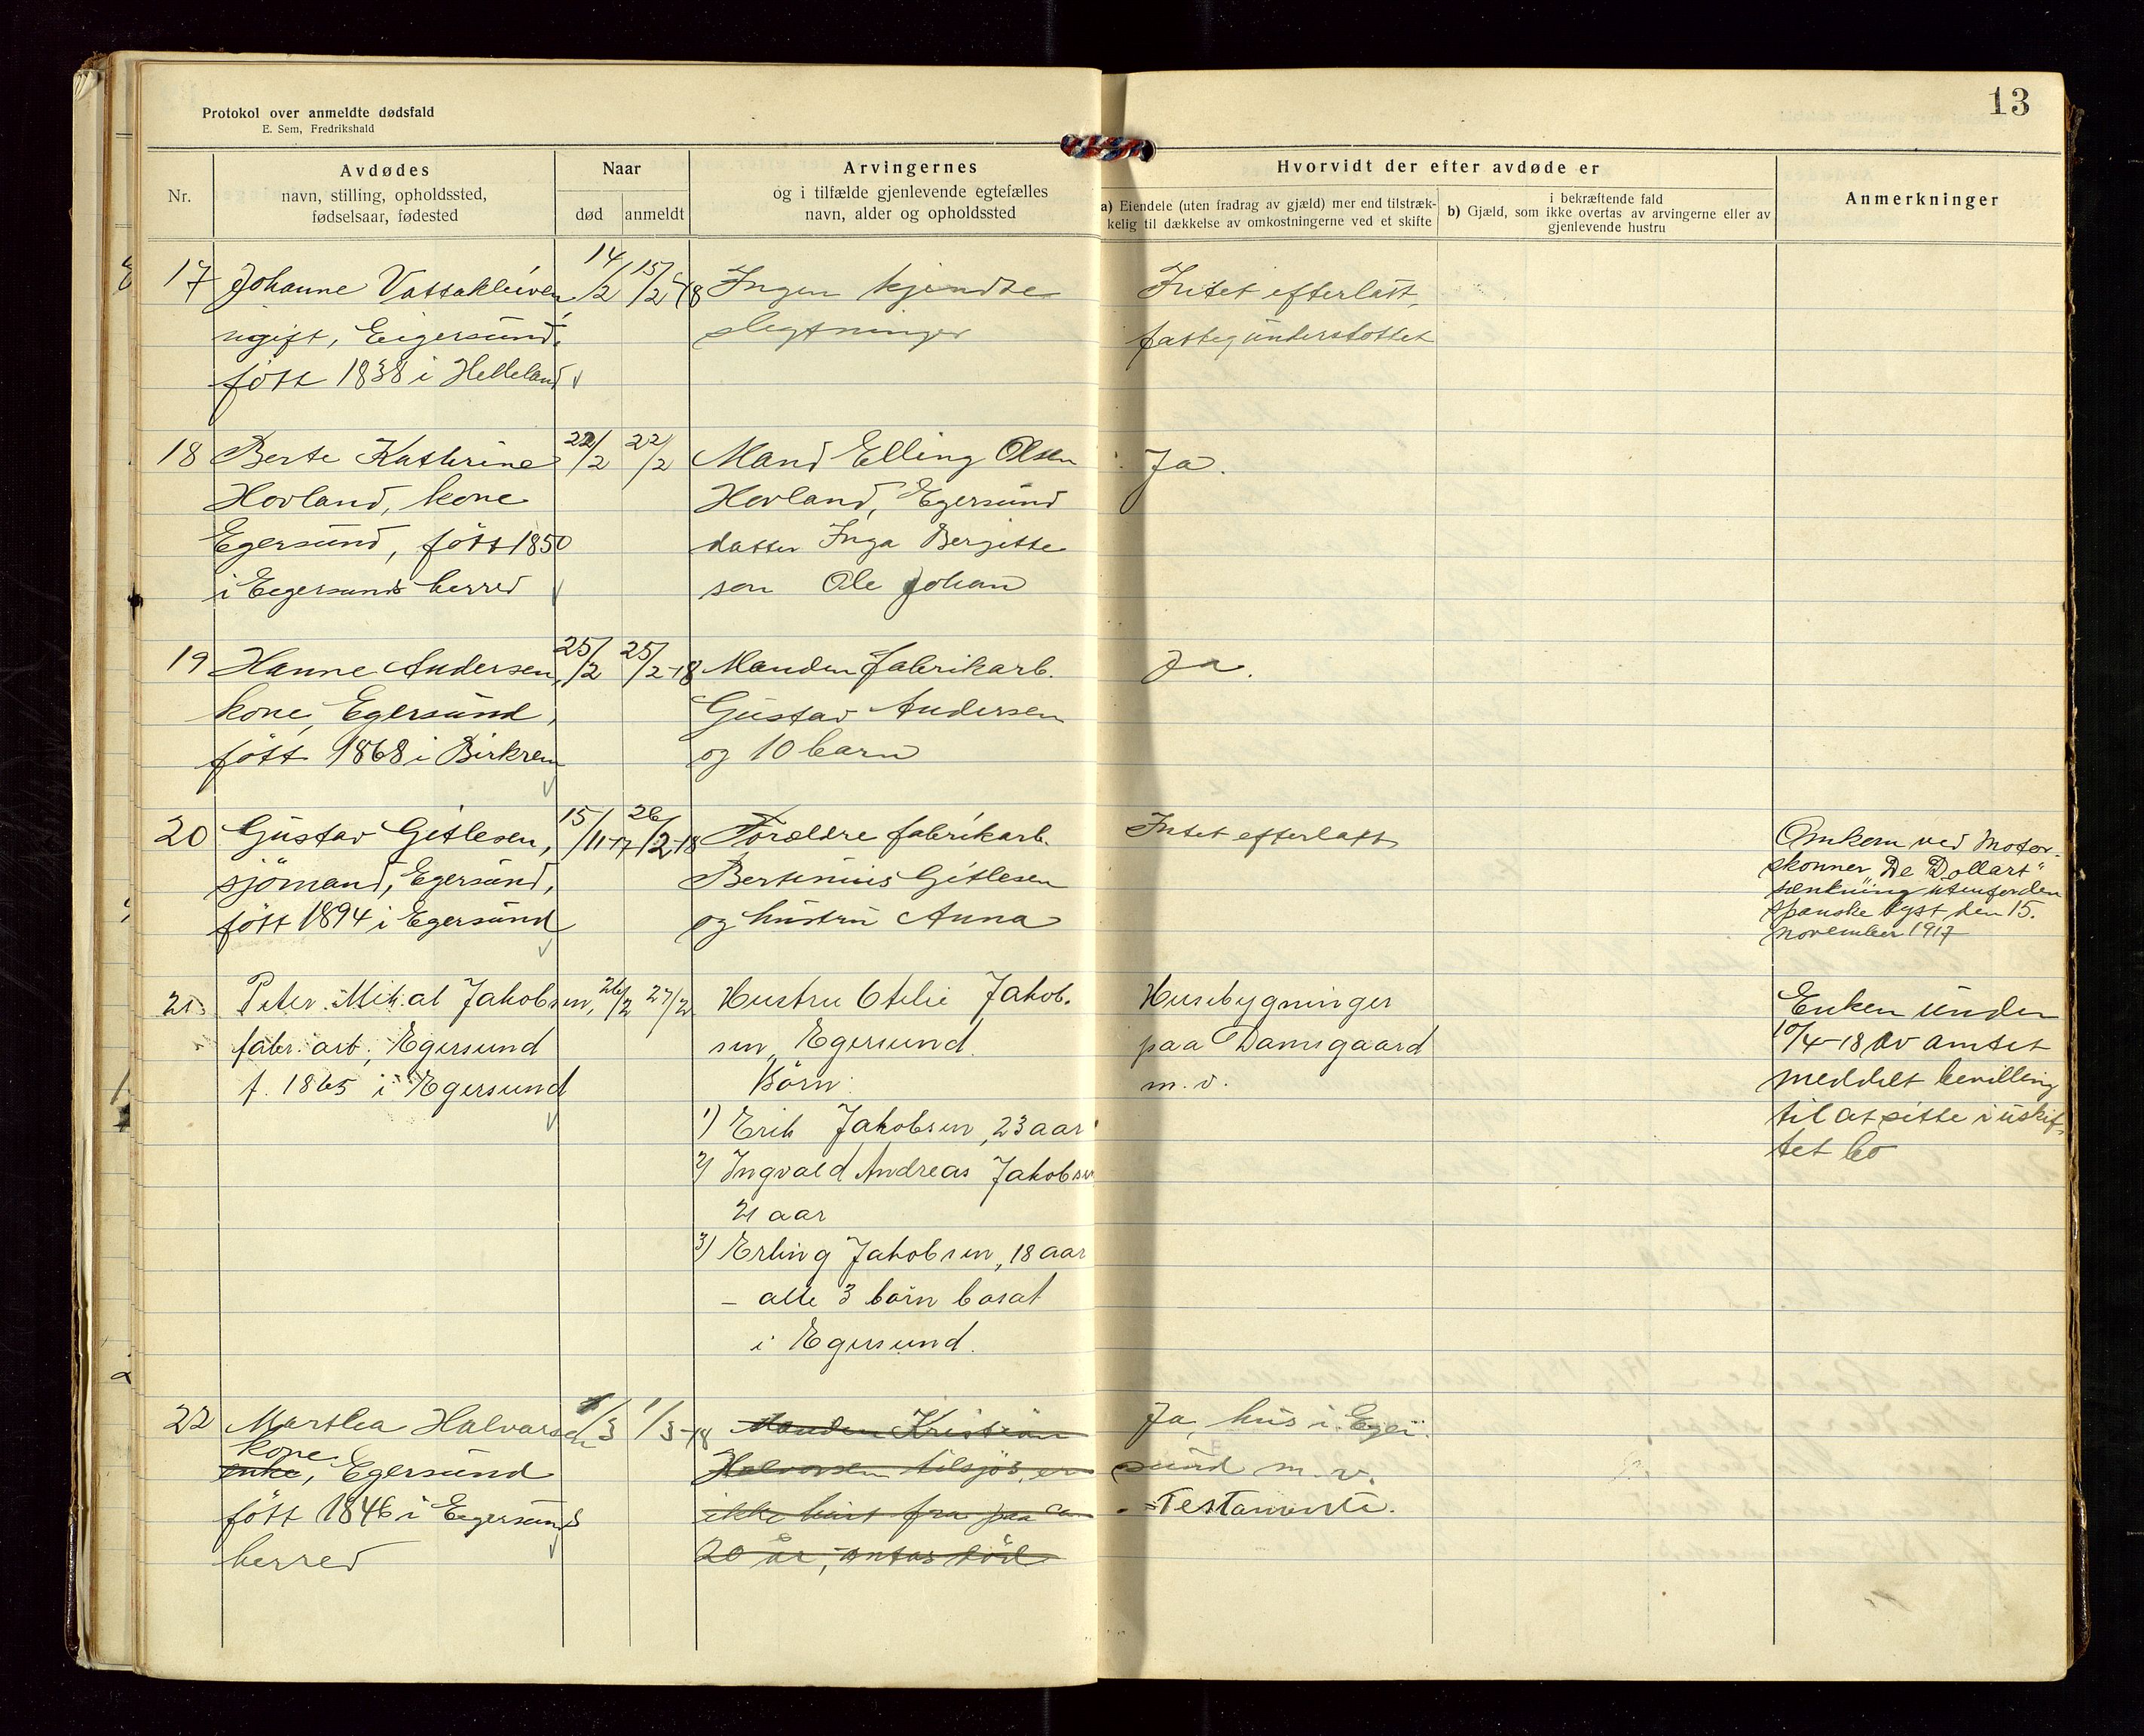 Protokol over anmeldte dødsfald
E. Sem, Fredrikshald
13
Nr.
Avdødes
navn, stilling, opholdssted,
fødselsaar, fødested
Naar
død
anmeldt
Arvingernes
og i tilfælde gjenlevende egtefælles
navn, alder og opholdssted
Hvorvidt der efter avdøde er
a) Eiendele (uten fradrag av gjæld) mer end tilstræk-
kelig til dækkelse av omkostningerne ved et skifte
i bekræftende fald
b) Gjæld, som ikke overtas av arvingerne eller av
gjenlevende hustru
Anmerkninger
17 Johanne Vassakleiven, 14/2 15/2-18 Ingen kjendte Intet efterlatt,
ugift, Eigersund, slegtninger fattigunderstøttet
fött 1838 i Helleland
18 Berte Kathrine 22/2 22/2 Mand Elling Olsen Ja.
Hovland, kone Hovland, Egersund
Egersund, fött 1850 datter Inga Bergitte
i Eegersunds herred sön Ole Johan
19 Hanne Andersen, 25/2 25/2-18 Manden fabrikarb. Ja.
kone, Egersund, Gustav Andersen
fött 1868 i Birkrem og 10 barn
20 Gustav Gitlesen, 15/11-17 26/2-18 Forældre fabrikarb. Intet efterlatt
sjömand, Egersund, Bertinius Gitlesen
fött 1894 i Egersund og hustru Anna
Omkom ved Motor-
skonner "De Dollart"
sænkning utenfor den
spanske kyst den 15.
november 1917
21. Peter Mikal Jakobsen, 26/2 27/2 Hustru Otelie Jakob- Husebygninger
fabr. arb., Egersund sen, Egersund. paa Damsgaard
f. 1865 i Egersund Börn: m. v.
1) Erik Jakobsen, 23 aar
2) Ingvald Andreas Jakobsen
21 aar
3) Erling Jakobsen, 18 aar
- alle 3 börn bosat
i Egersund.
Enken under
10/4-18 av amtet
meddelt bevilling
til at sitte i uskif-
tet bo
22 Marthea Halvorsen 1/3 1/3-18 Manden Kristian Ja, hus i Eger-
kone
enke, Egersund Halvorsen tilsjös, er sund m. v.
fött 1846 i Eegersunds ikke hört fra paa ca - Testamente.
herred 20 år, antas död